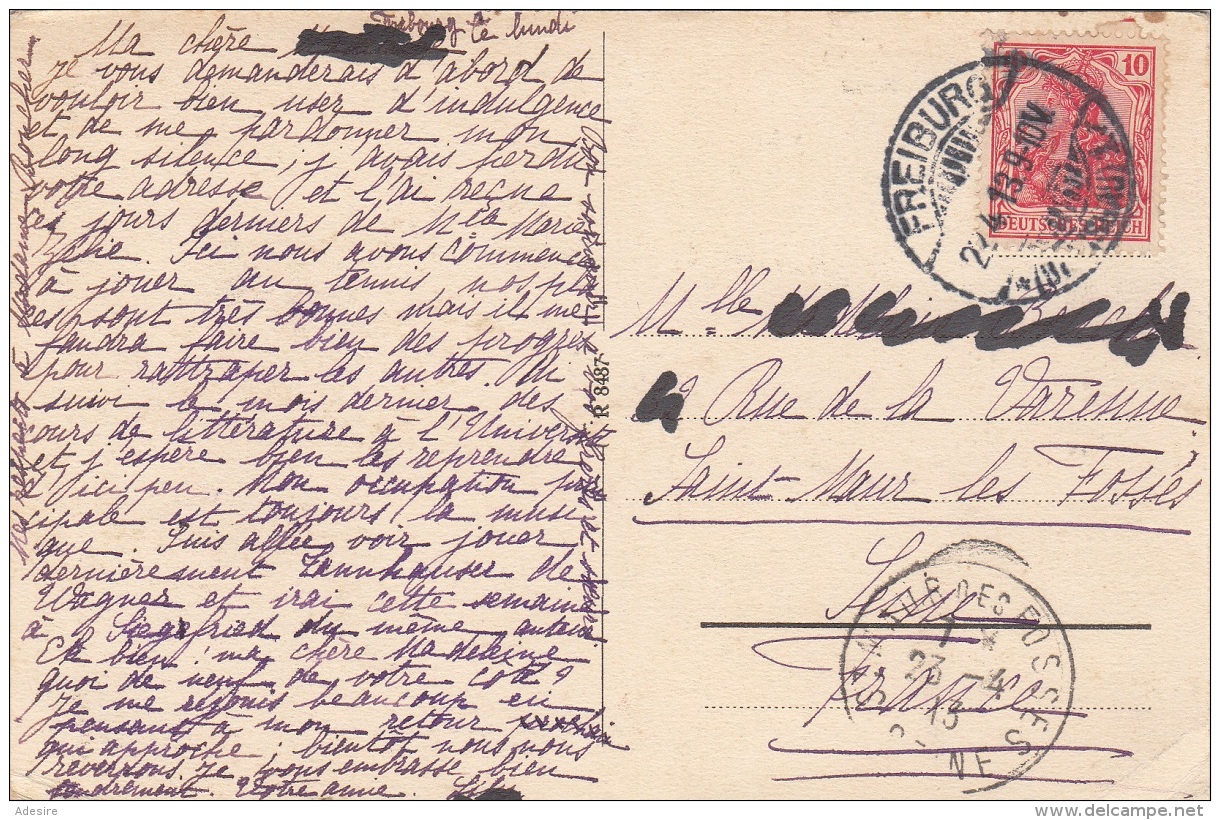 Fribourg le lundi
Ma chère
je vous demanderais d'abord de
vouloir bien user d'indulgence
et de me pardonner mon
long silence; j'avais perdu
votre adresse et l'ai reçue
ces jours derniers de Mlle Marie
Zélie. Ici nous avons commencé
à jouer au tennis nos pla
ces sont très bonnes mais il me
faudra faire bien des progrès
pour rattraper les autres. Ai
suivi le mois dernier des
cours de littérature à l'Université
et j'espère bien les reprendre
d'ici peu. Mon occupation prin
cipale est toujours la musi
que. Suis allée voir jouer
dernièrement Tannhauser de
Wagner et irai cette semaine
à Siegfried du même auteur
Eh bien! ma chère Madeleine
quoi de neuf de votre côté?
Je me réjouis beaucoup en
pensant à mon retour
qui approche; bientôt nous nous
reverrons. Je vous embrasse bien
tendrement. Votre amie.
Mes respects à Madame
R 8487
FREIBURG
22.4.13.9-10V.
10
DEUTSCHES REICH
Mlle
9 Rue de la Varenne
Saint-Maur les Fossés
Seine
France
ST MAUR DES FOSSES
7
23 -4
13
SEINE
Adesire
delcampe.net